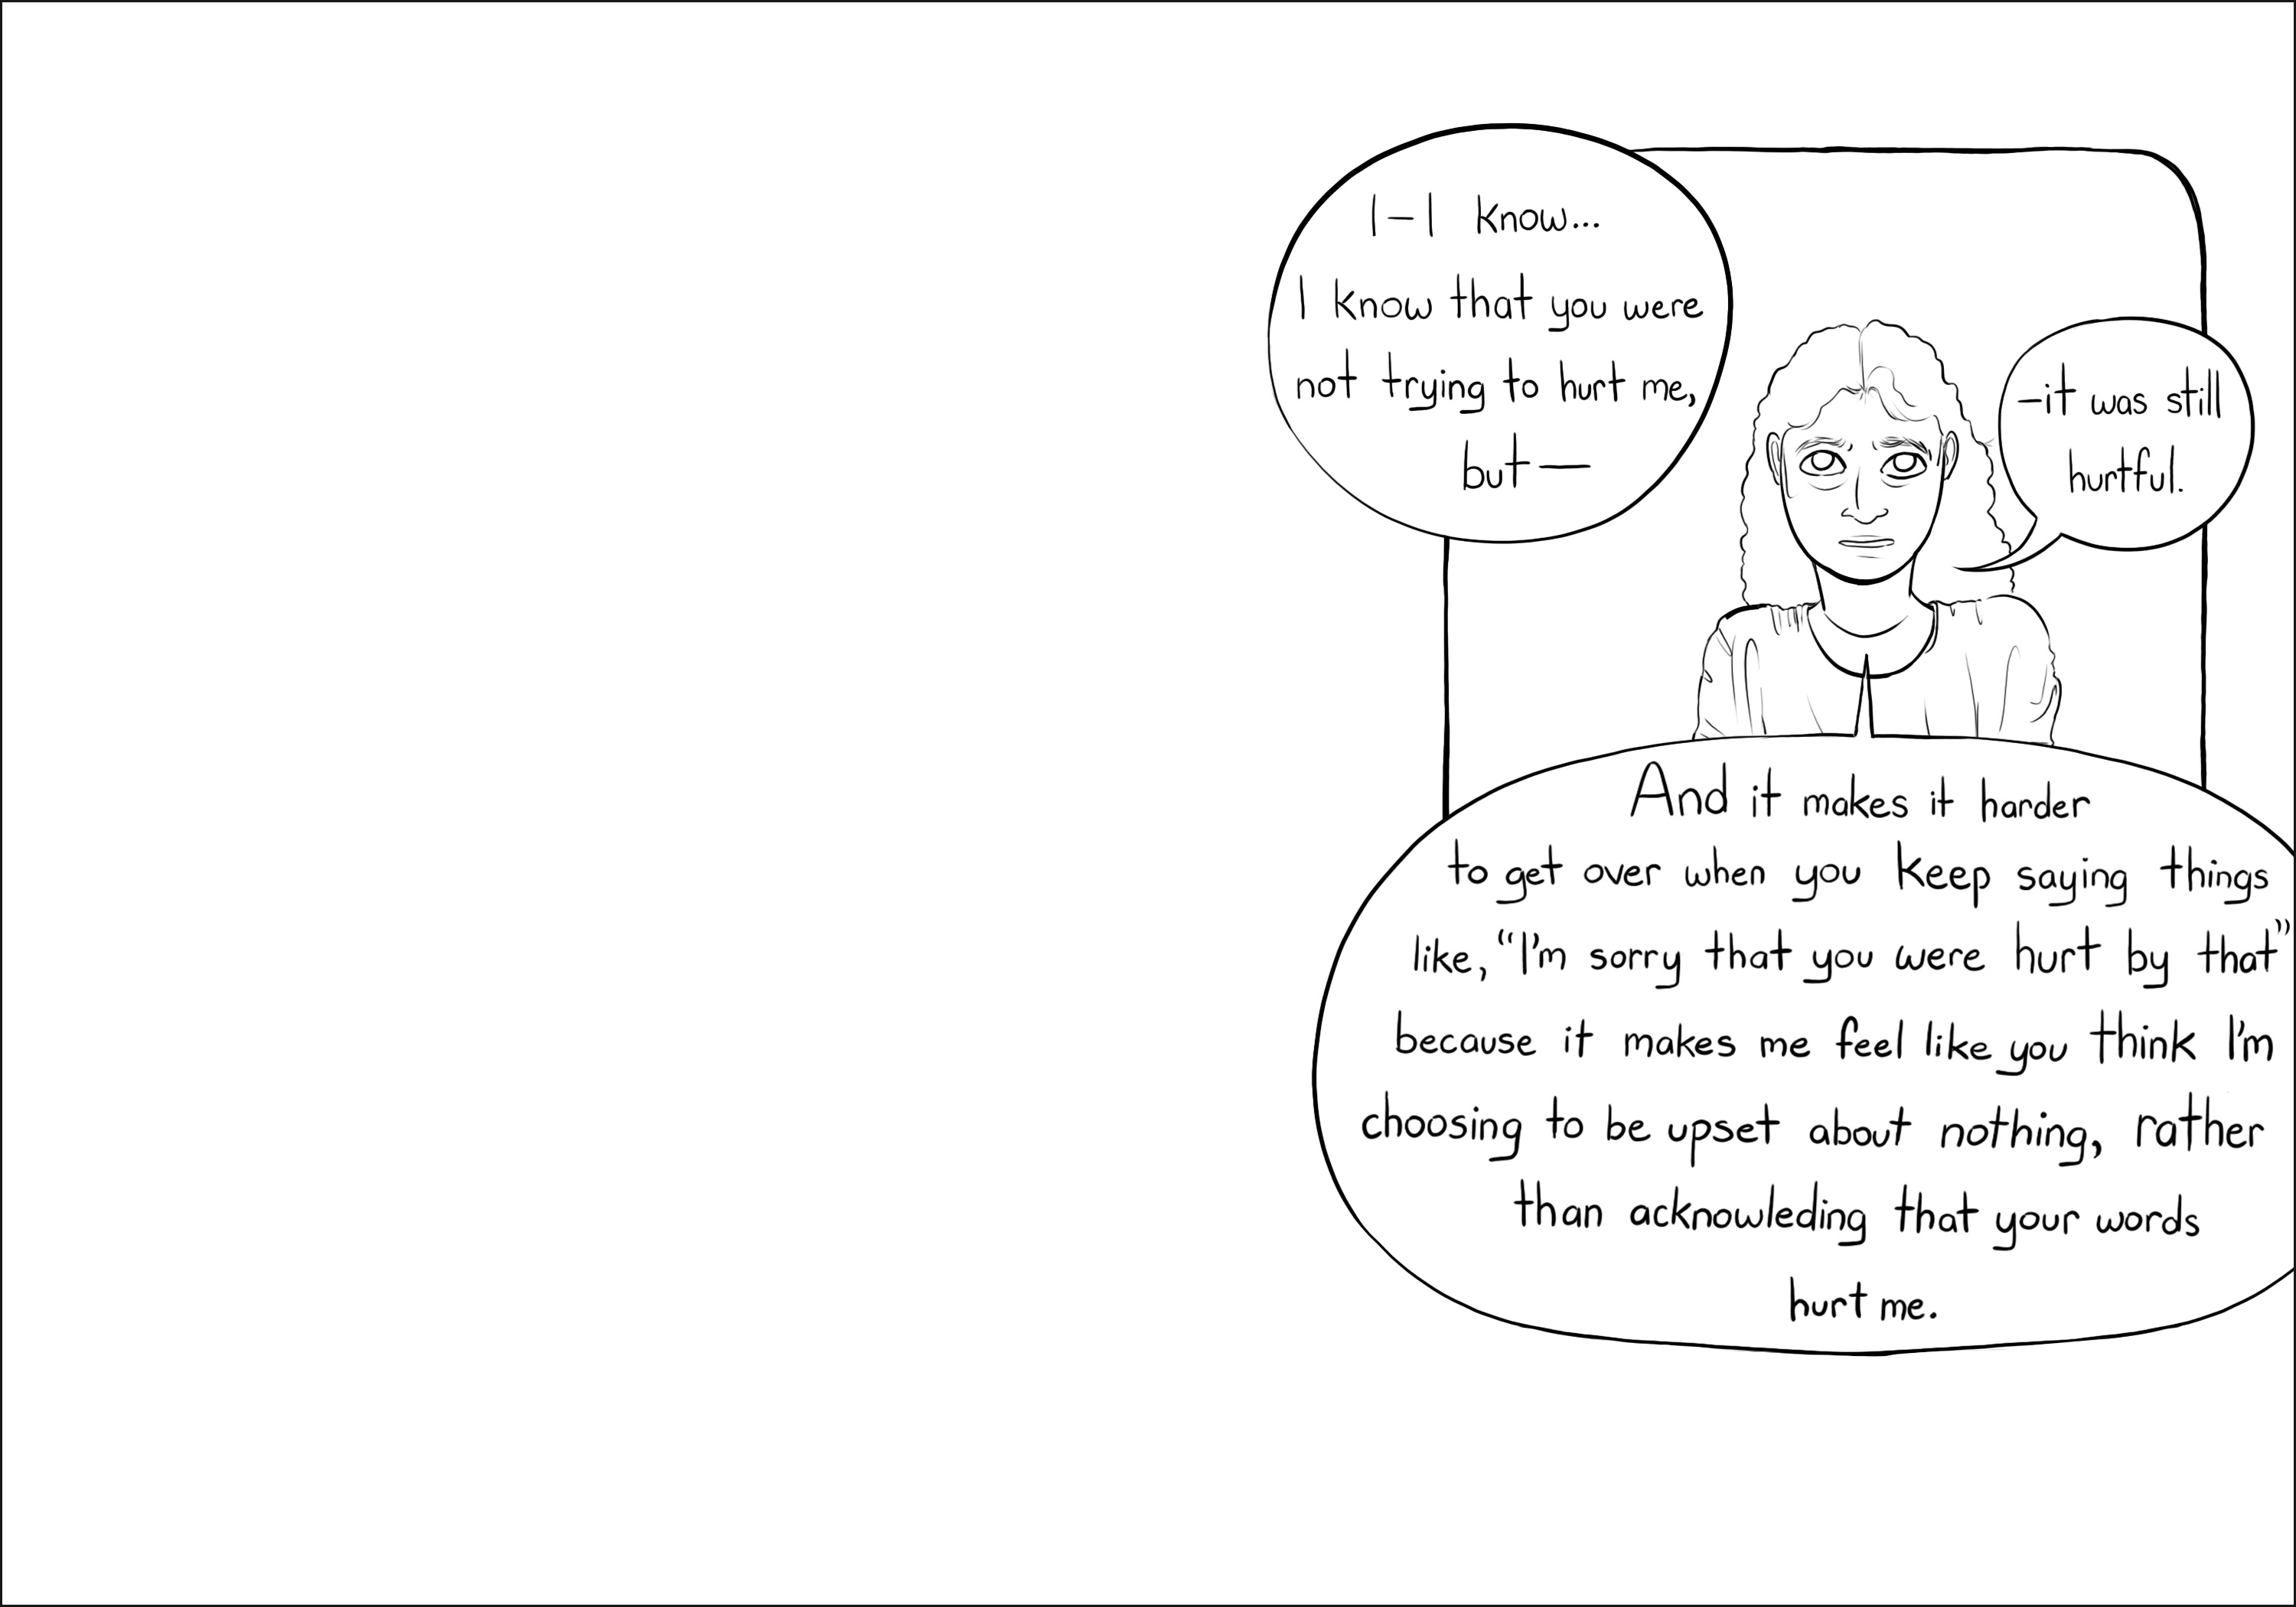 I-I know...
I know that you were
not trying to hurt me,
but—
—it was still
hurtful.
And it makes it harder
to get over when you keep saying things
like, “I'm sorry that you were hurt by that”
because it makes me feel like you think I'm
choosing to be upset about nothing, rather
than acknowleding that your words
hurt me.